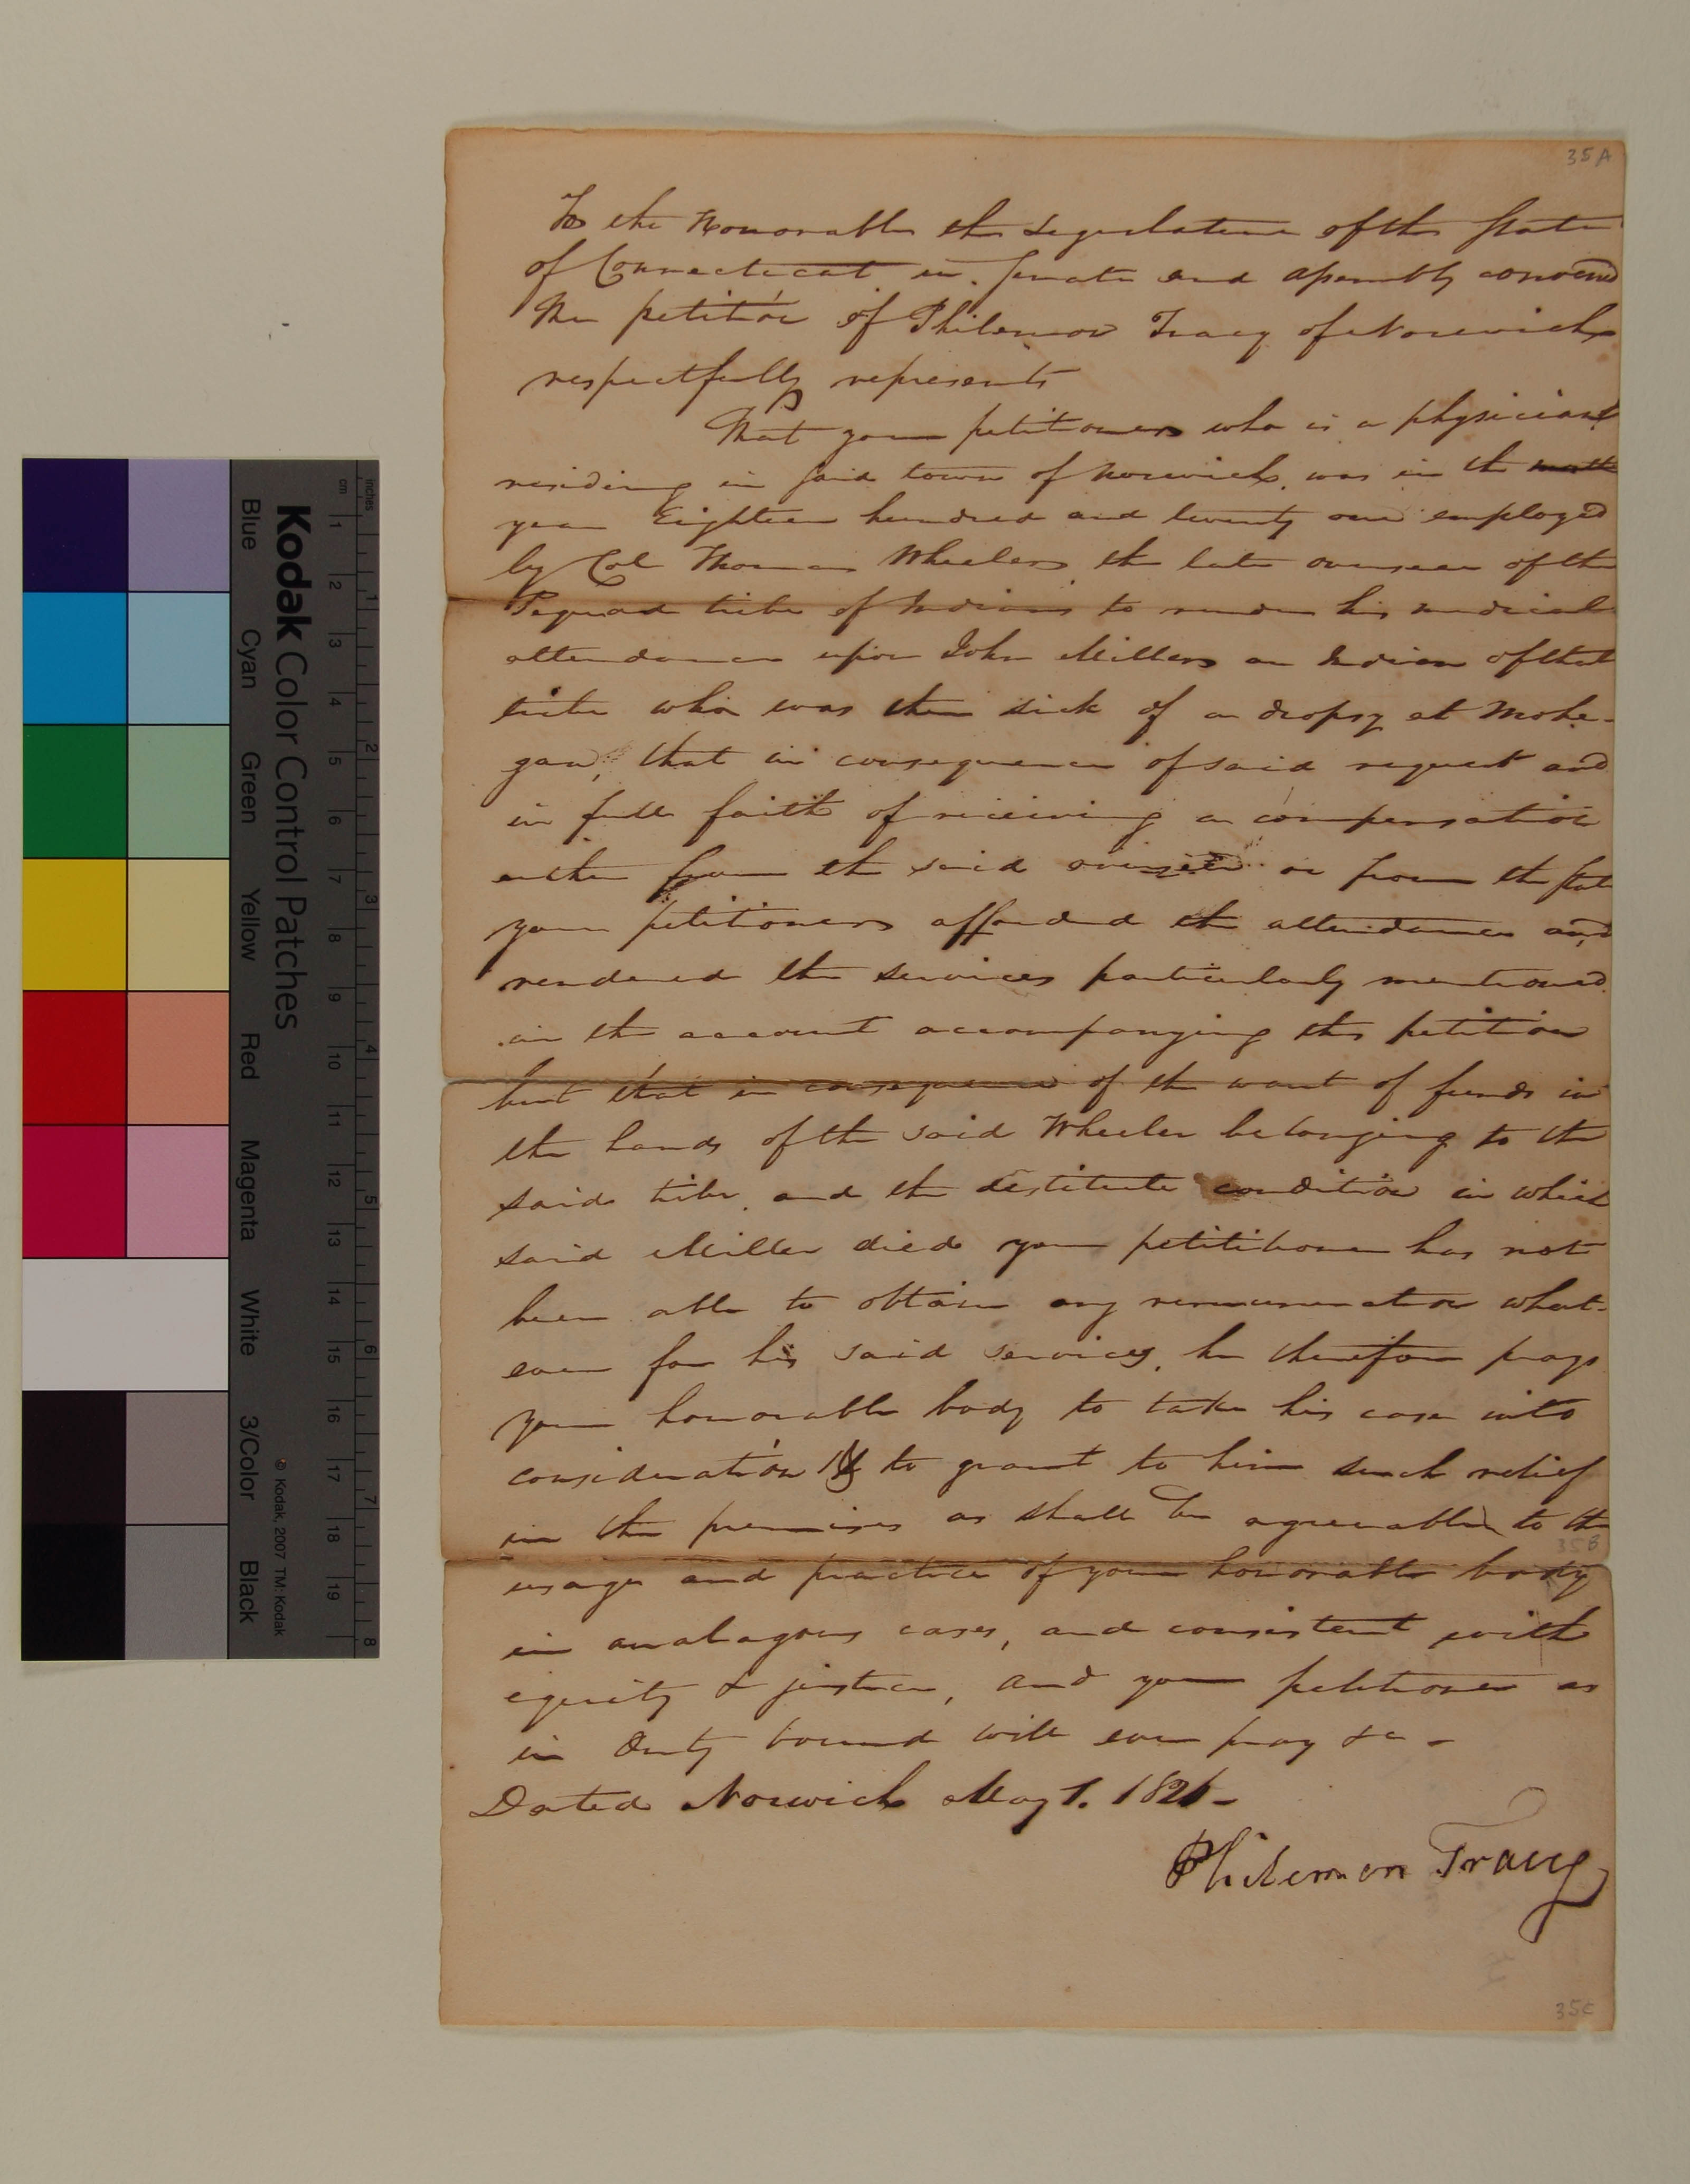 35A
To the Honorable the Legeslature of the State
of Connecticut in Senate and assembly convened
The petition of Philemon Tracy of Norwich
respectfully represents
That your petitioner who is a physician
residing in said town of Norwich, was in the
year Eighteen hundred and twenty one employed
by Col Thomas Wheeler, the late overseer of the
Pequod tribe of Indians to render his medical
attendance upon John Miller an Indian of that
tribe who was then sick of a dropsy at Mohe-
gan, that in consequence of said request and
in full faith of receiving a compensation
either from the said overseer or from the State
your petitioner afforded the attendance and
rendered the services particularly mentioned
in the account accompanying this petition
but that in consequence of the want of funds in
the hands of the said Wheeler belonging to the
said tribe, and the destitute condition in which
said Miller died your petititioner has not
been able to obtain any remuneration what-
ever for his said services, he therefore prays
your honorable body to take his case into
consideration & to grant to him such relief
in the premises as shall be agreeable to the
35B
usage and practice of your honorable body
in analagous cases, and consistent with
equity & justice, and your petitioner as
in duty bound will ever pray &c -
Dated Norwich May 1. 1826-
Philemon Tracy
35C
Kodak Color Control Patches
© Kodak, 2007 TM: Kodak
Blue Cyan Green Yellow Red Magenta White 3/Color Black
cm 1 2 3 4 5 6 7 8 9 10 11 12 13 14 15 16 17 18 19
inches 1 2 3 4 5 6 7 8